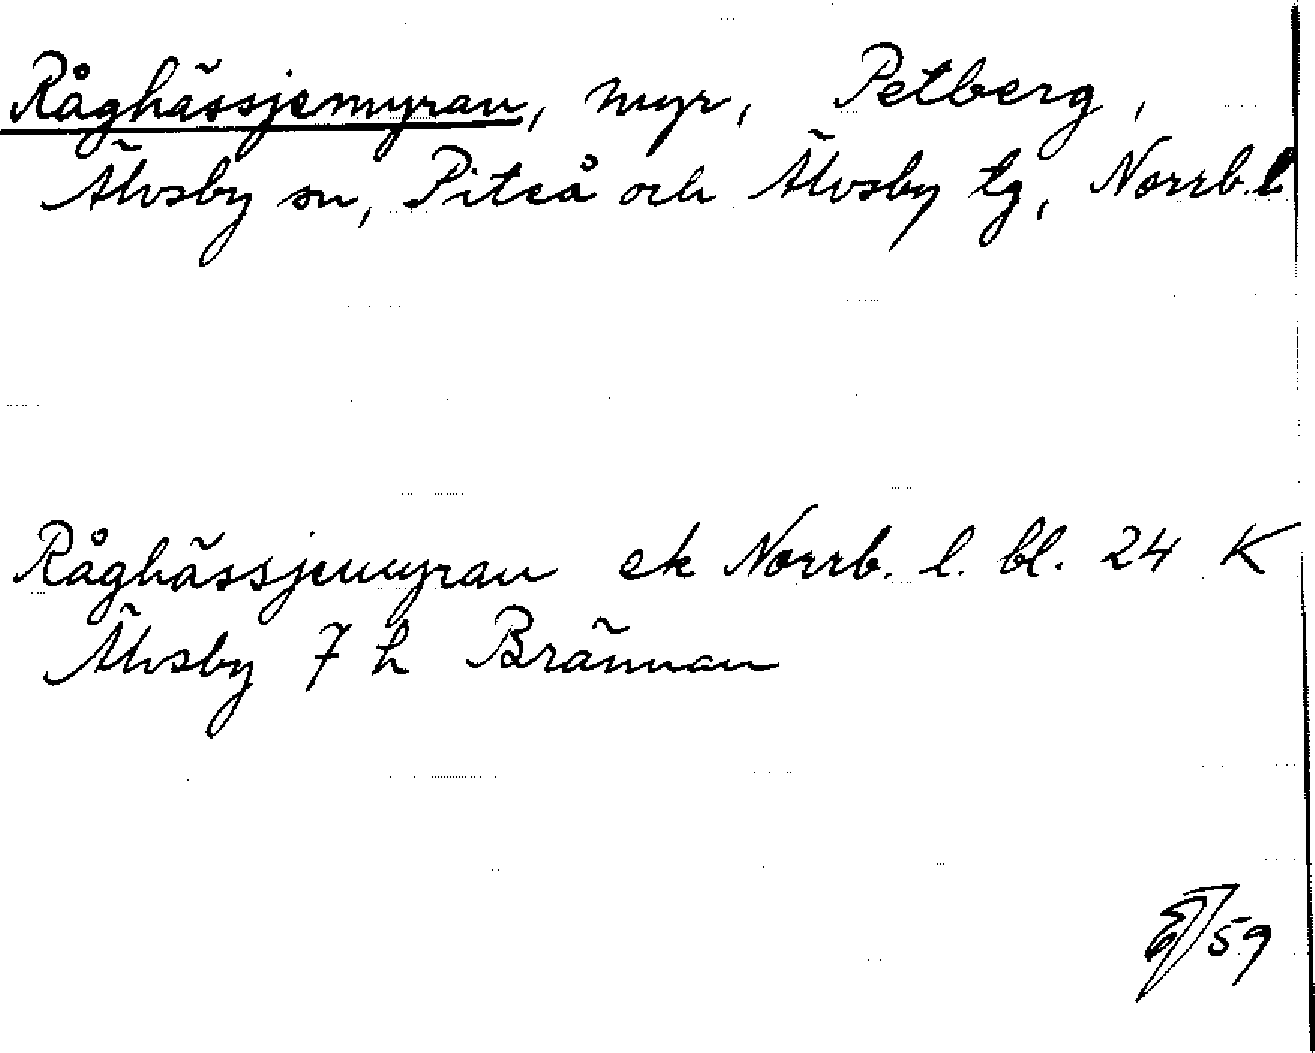 Råghässjemyran, myr, Petberg,
Älvsby sn, Piteå och Älvsby tg, Norrb. l
Råghässjemyran ek Norrb. l. bl. 24 K
Älvsby 7 h Brännan
59